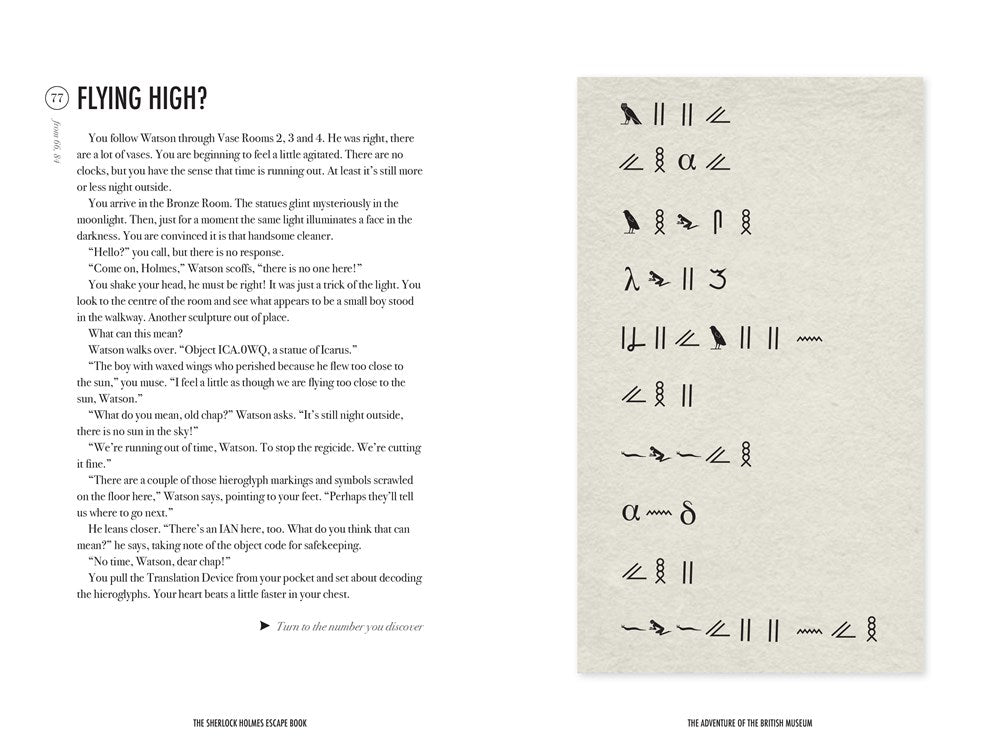 77
FLYING HIGH?
from 66, 84
You follow Watson through Vase Rooms 2, 3 and 4. He was right, there
are a lot of vases. You are beginning to feel a little agitated. There are no
clocks, but you have the sense that time is running out. At least it’s still more
or less night outside.
You arrive in the Bronze Room. The statues glint mysteriously in the
moonlight. Then, just for a moment the same light illuminates a face in the
darkness. You are convinced it is that handsome cleaner.
“Hello?” you call, but there is no response.
“Come on, Holmes,” Watson scoffs, “there is no one here!”
You shake your head, he must be right! It was just a trick of the light. You
look to the centre of the room and see what appears to be a small boy stood
in the walkway. Another sculpture out of place.
What can this mean?
Watson walks over. “Object ICA.0WQ, a statue of Icarus.”
“The boy with waxed wings who perished because he flew too close to
the sun,” you muse. “I feel a little as though we are flying too close to the
sun, Watson.”
“What do you mean, old chap?” Watson asks. “It’s still night outside,
there is no sun in the sky!”
“We’re running out of time, Watson. To stop the regicide. We’re cutting
it fine.”
“There are a couple of those hieroglyph markings and symbols scrawled
on the floor here,” Watson says, pointing to your feet. “Perhaps they’ll tell
us where to go next.”
He leans closer. “There’s an IAN here, too. What do you think that can
mean?” he says, taking note of the object code for safekeeping.
“No time, Watson, dear chap!”
You pull the Translation Device from your pocket and set about decoding
the hieroglyphs. Your heart beats a little faster in your chest.
Turn to the number you discover
THE SHERLOCK HOLMES ESCAPE BOOK
THE ADVENTURE OF THE BRITISH MUSEUM